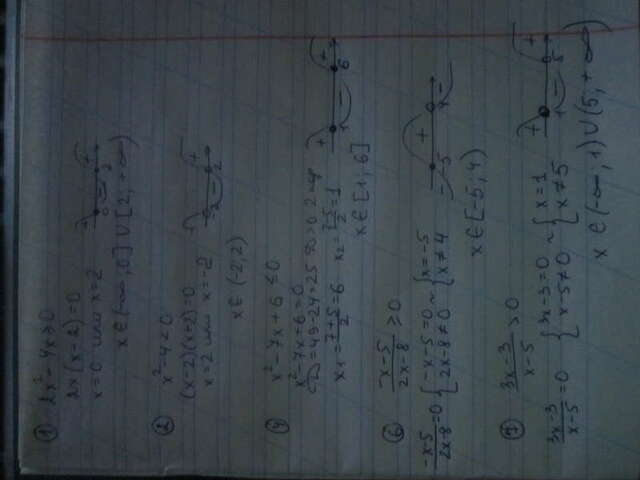 ① 2x² - 4x ≥ 0
2x(x-2)=0
x=0 или x=2
+ 0 - 2 +
x ∈ (-∞; 0] ∪ [2; +∞)
② x² - 4 < 0
(x-2)(x+2)=0
x=2 или x=-2
-2 - 2 +
x ∈ (-2; 2)
④ x² - 7x + 6 ≤ 0
x² - 7x + 6 = 0
D = 49 - 24 = 25 >0 2 кор
x₁ = (7+5)/2 = 6 x₂ = (7-5)/2 = 1
+ 1 - 6 +
x ∈ [1; 6]
⑥ (-x-5)/(2x-8) ≥ 0
(-x-5)/(2x-8) = 0 { -x-5=0 2x-8≠0 ~ { x=-5 x≠4
- -5 + 4 -
x ∈ [-5; 4)
⑦ (3x-3)/(x-5) > 0
(3x-3)/(x-5) = 0 { 3x-3=0 x-5≠0 ~ { x=1 x≠5
+ 1 - 5 +
x ∈ (-∞; 1) ∪ (5; +∞)